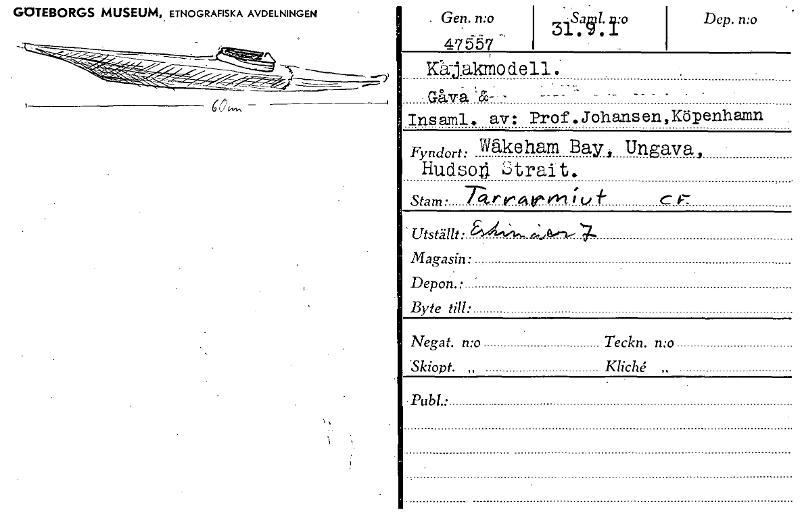 GÖTEBORGS MUSEUM, ETNOGRAFISKA AVDELNINGEN
60 cm
Gen. n:o Saml. n:o Dep. n:o
47557 31.9.1
Kajakmodell.
Gåva &
Insaml. av: Prof.Johansen,Köpenhamn
Fyndort: Wakeham Bay, Ungava,
Hudson Strait.
Stam: Tarrarmiut CF.
Utställt:
Magasin:
Depon.:
Byte till:
Negat. n:o Teckn. n:o
Skiopt. „ Kliché „
Publ.: